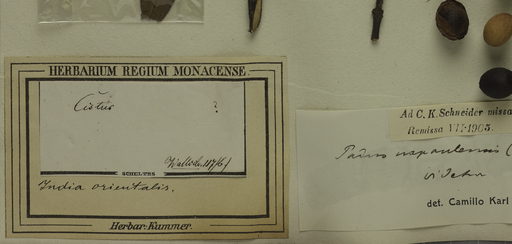 HERBARIUM REGIUM MONACENSE.
Cistus ?
SCHEDULAS
India orientalis.
Herbar-Kummer.
Ad C. K. Schneider missa
Remissa VII-1905.
Padus napaulensis (
vidctur
det. Camillo Karl